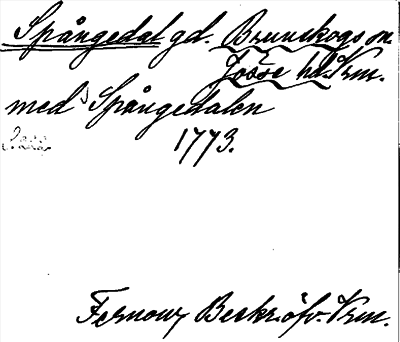 Spångedal gd. Brunskogs sn.
Jösse hd. Vrm.
med Spångedalen
1773.
Fernow, Beskr. öfv. Vrm.